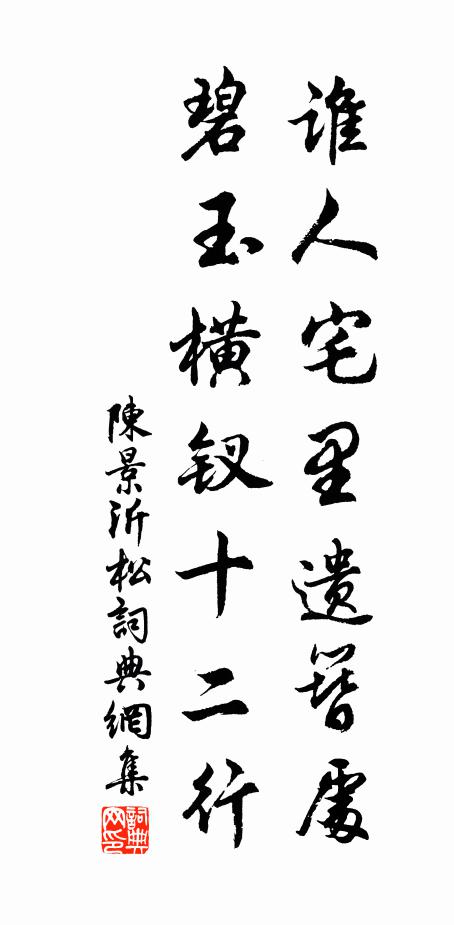 谁人宅里遗簪處
碧玉横钗十二行
陳景沂松詞典網集
詞典网印